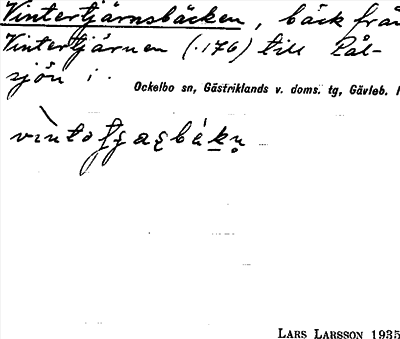 Vintertjärnsbäcken, bäck från
Vintertjärnen (.176) till Pål-
sjön i
Ockelbo sn, Gästriklands v. doms. tg, Gävleb.
LARS LARSSON 1935